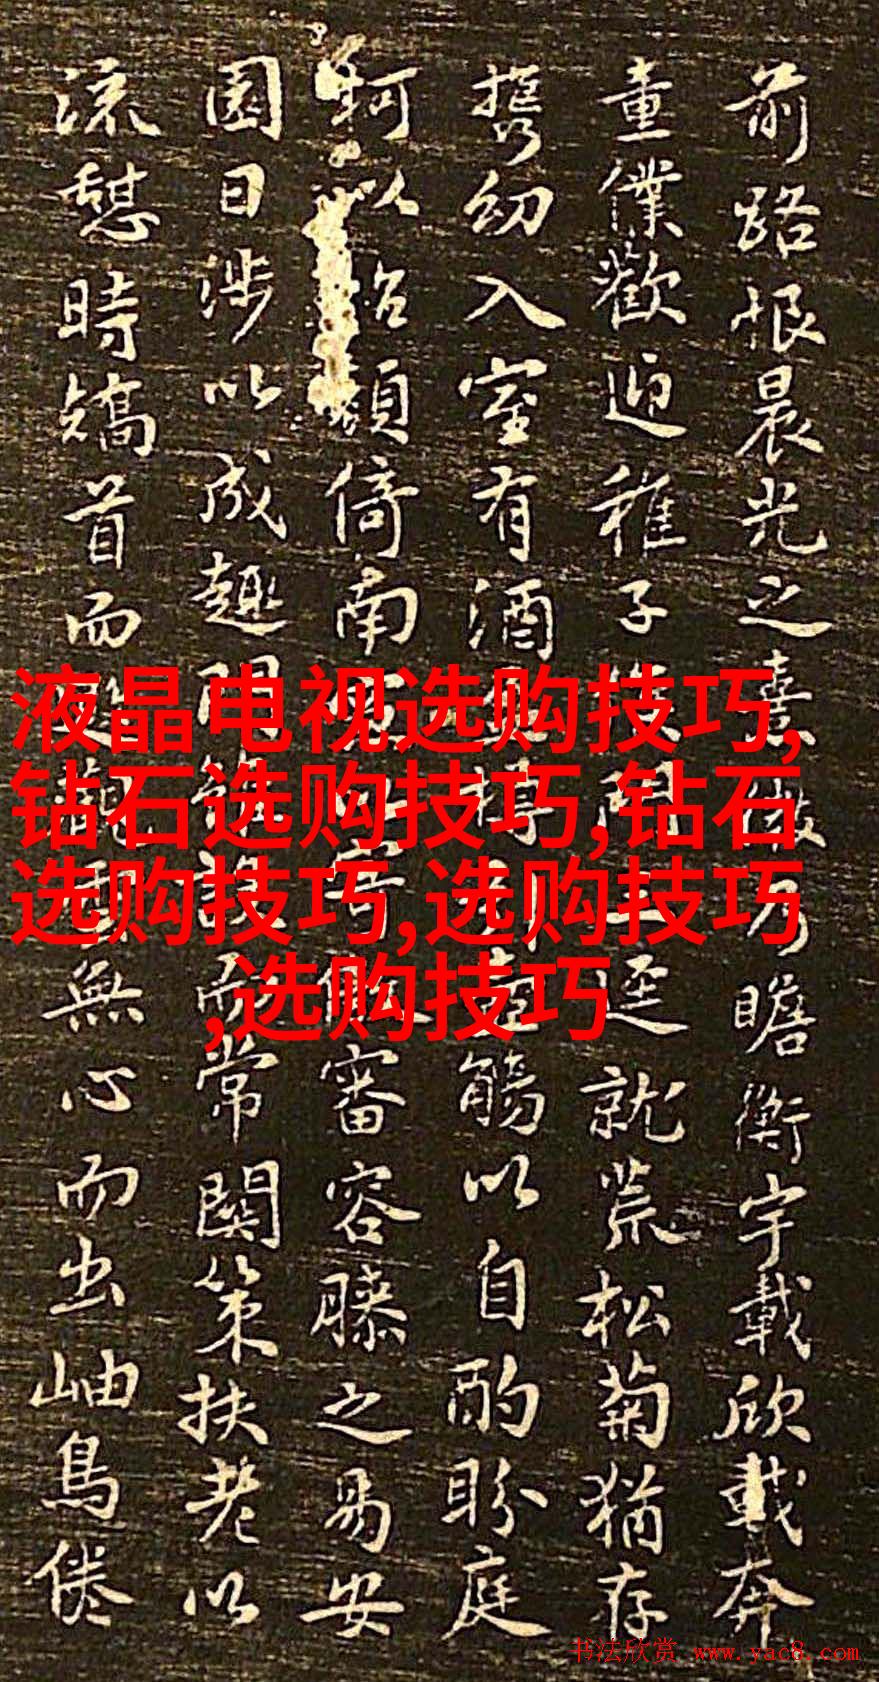 前路恨晨光之熹微乃瞻衡宇載欣載奔
童僕歡迎稚子候門三逕就荒松菊猶存
携幼入室有酒盈樽引壺觴以自酌盼庭
柯以怡顏倚南窗以寄傲審容膝之易安
園日涉以成趣門雖設而常關策扶老以
流憩時矯首而遐觀雲無心而出岫鳥倦
液晶电视选购技巧,
钻石选购技巧,钻石
选购技巧,选购技巧
,选购技巧
书法欣赏 www.yac8.com